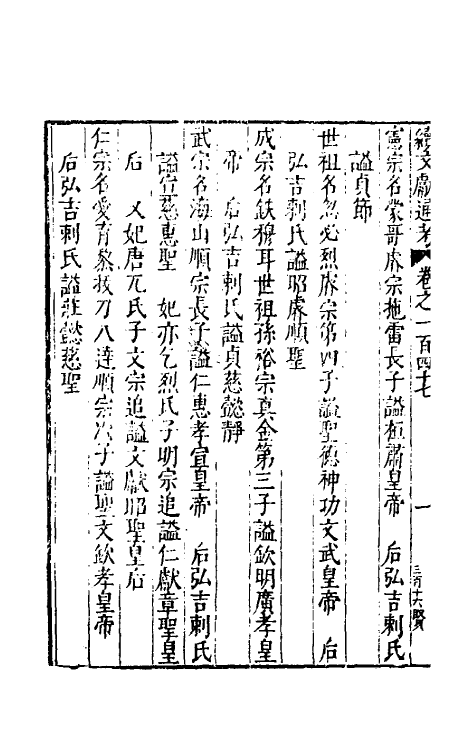 續文獻通考 卷之一百四十七 一
憲宗名蒙哥睿宗拖雷長子謚桓肅皇帝 后弘吉剌氏
謚貞節
世祖名忽必烈睿宗第四子謚聖德神功文武皇帝 后
弘吉剌氏謚昭睿順聖
成宗名鉄穆耳世祖孫裕宗真金第三子謚欽明廣孝皇
帝 后弘吉剌氏謚貞慈懿靜
武宗名海山順宗長子謚仁惠孝宣皇帝 后弘吉剌氏
謚宣慈惠聖 妃亦乞烈氏子明宗追謚仁獻章聖皇
后 又妃唐兀氏子文宗追謚文獻昭聖皇后
仁宗名愛育黎拔刀八達順宗次子謚聖文欽孝皇帝
后弘吉剌氏謚莊懿慈聖